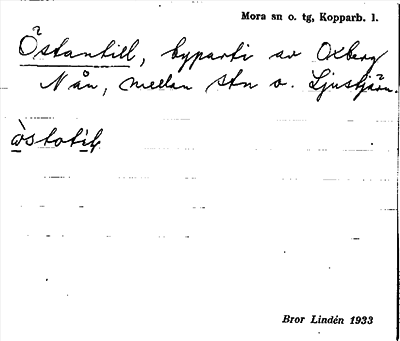 Mora sn o. tg, Kopparb. l.
Östantill, byparti av Oxberg
N ån, mellan stn o. Ljustjärn.
òstotiḷ
Bror Lindén 1933